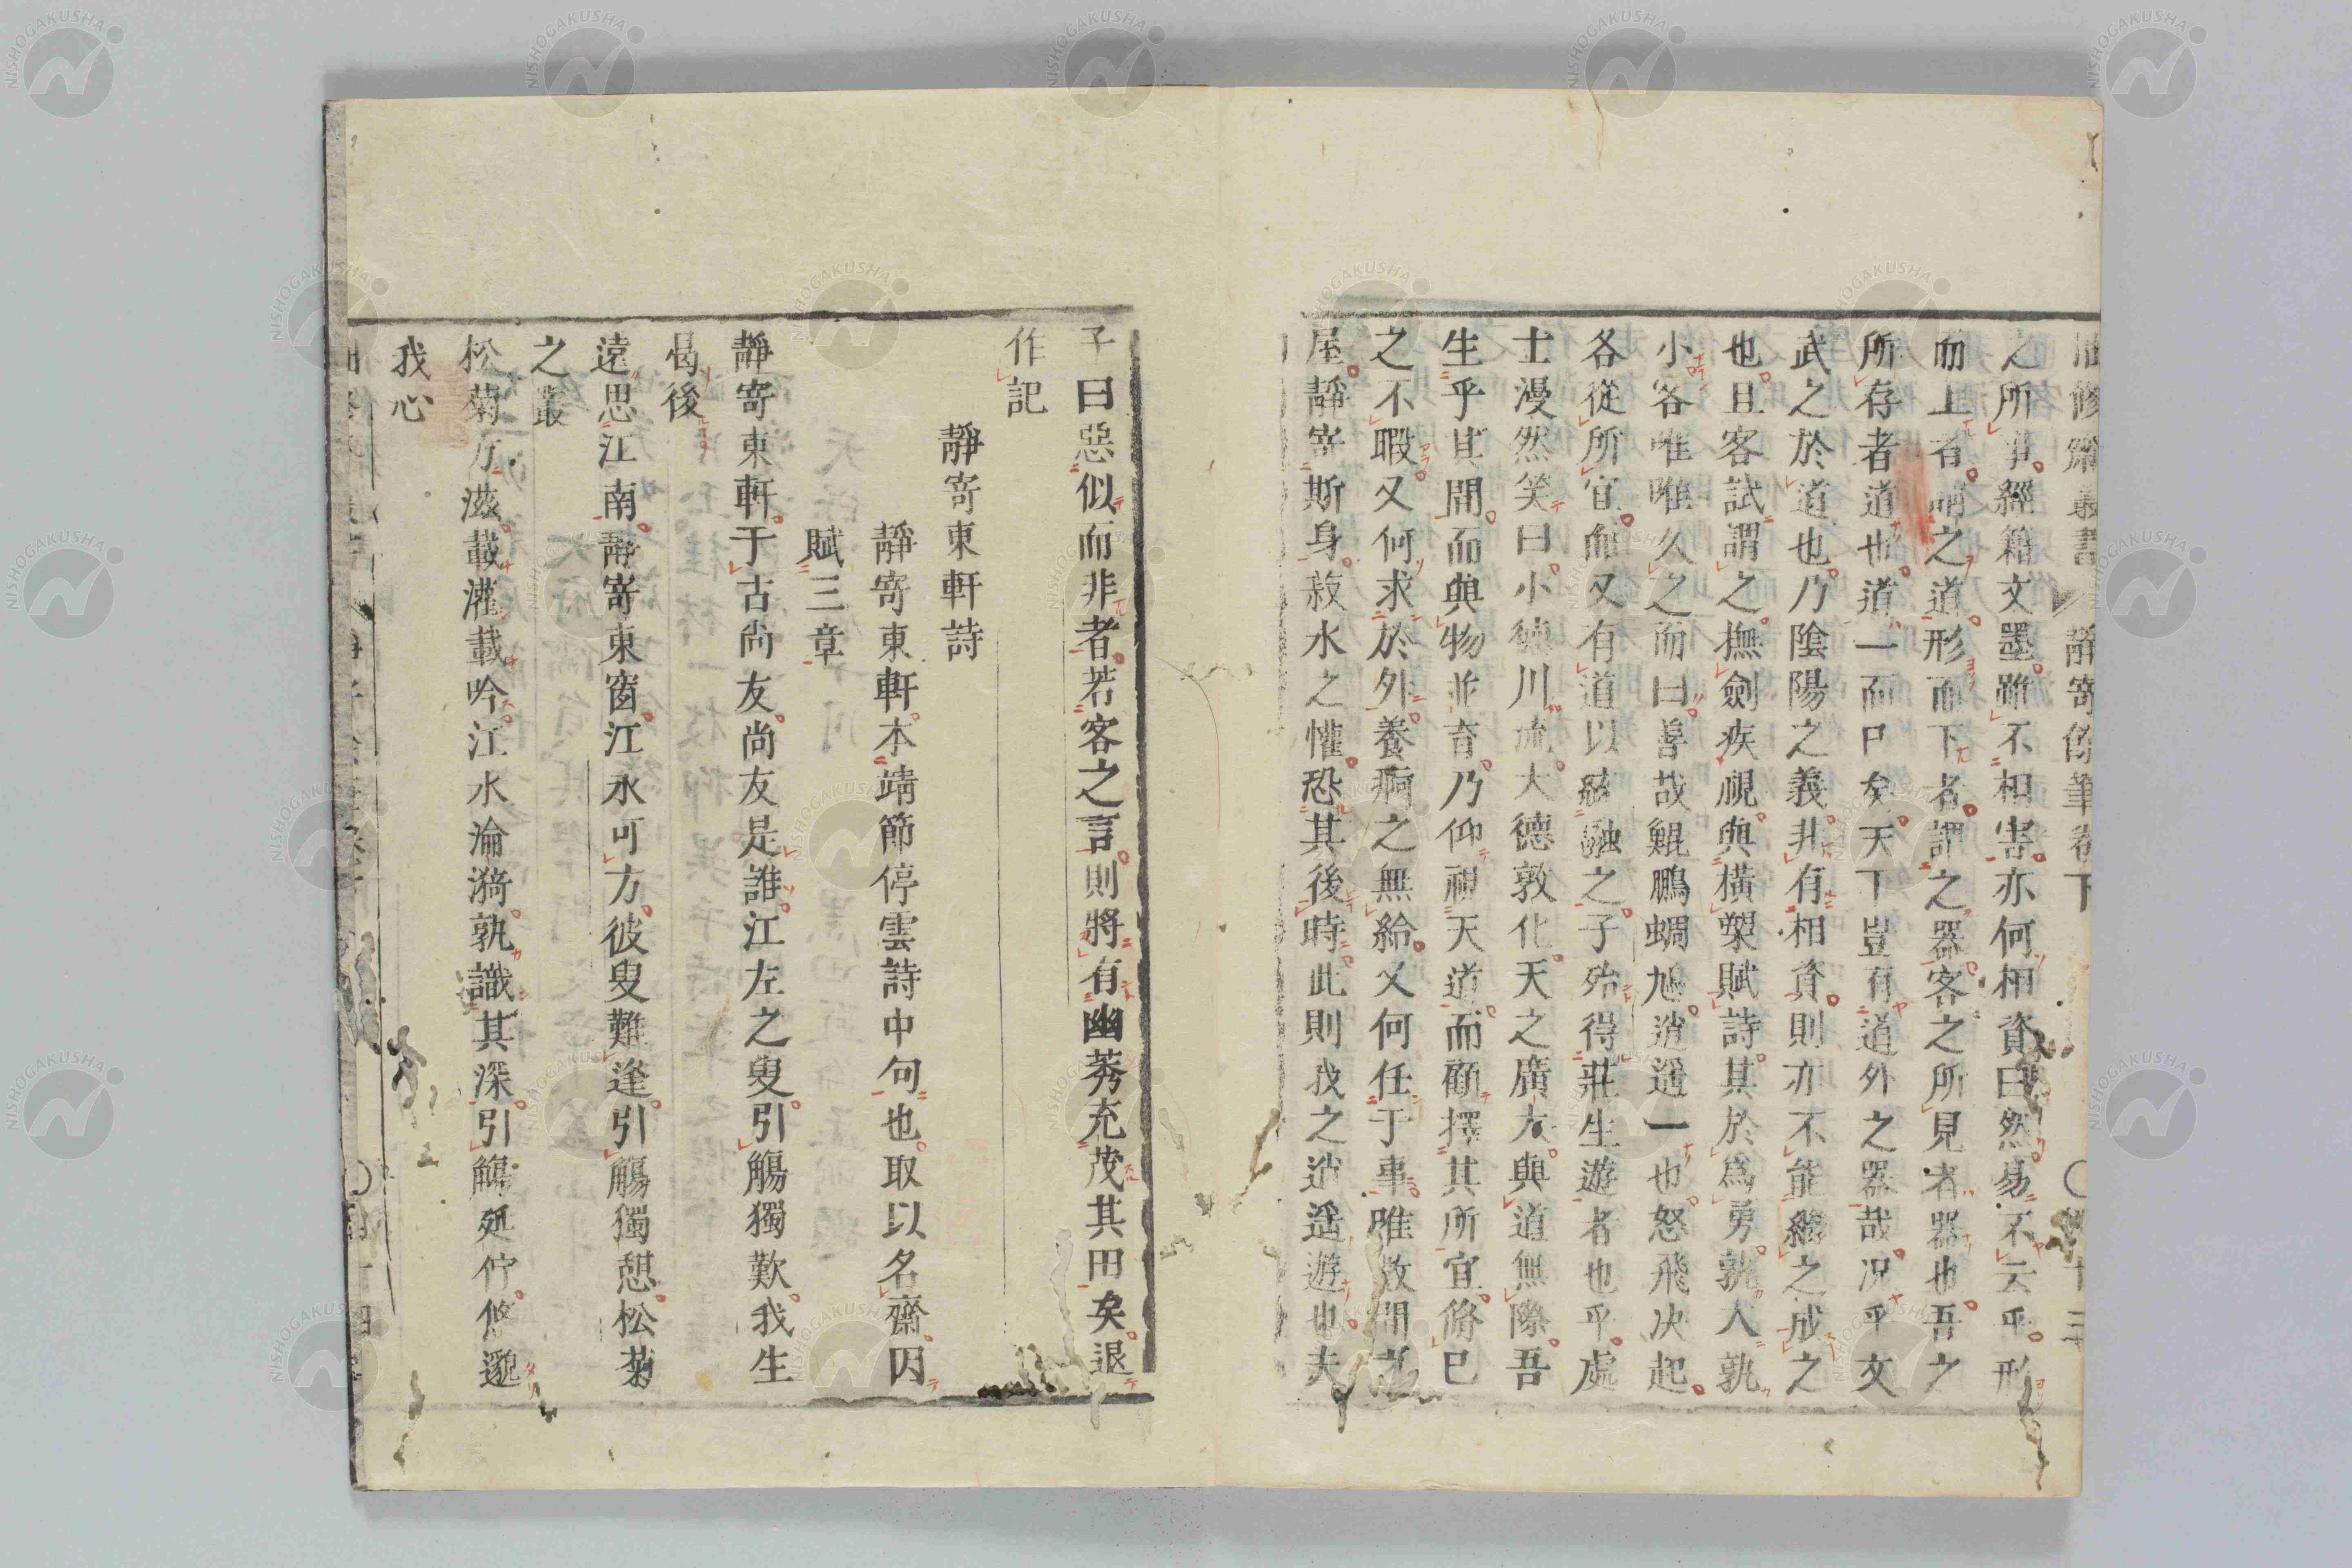 修齋叢書 靜寄餘筆卷下 十三
之所事經籍文墨雖不相害亦何相資曰然易不云乎形
而上者謂之道形而下者謂之器客之所見者器也吾之
所存者道也道一而已矣天下豈有道外之器哉况乎文
武之於道也乃陰陽之義非有相資則亦不能繼之成之
也且客試謂之撫劍疾視與橫槊賦詩其於爲勇孰大孰
小客唯唯久之而曰善哉鯤鵬蜩鳩逍遥一也怒飛决起
各從所宜而又有道以融之子殆得莊生遊者也乎處
士漫然笑曰小德川流大德敦化天之廣大與道無際吾
生乎其間而與物並育乃仰視天道而顧擇其所宜脩已
之不暇又何求於外養痾之無給又何任于事唯散閒之
屋靜寄斯身菽水之懽恐其後時此則我之逍遥遊也夫
子曰惡似而非者若客之言則將有幽莠充茂其田矣退
作記
靜寄東軒詩
靜寄東軒本靖節停雲詩中句也取以名齋因
賦三章
靜寄東軒于古尚友尚友是誰江左之叟引觴獨歎我生
曷後
遠思江南靜寄東窗江水可方彼叟難逢引觴獨憇松菊
之叢
松菊方滋載灌載吟江水淪漪孰識其深引觴延佇悠邈
我心